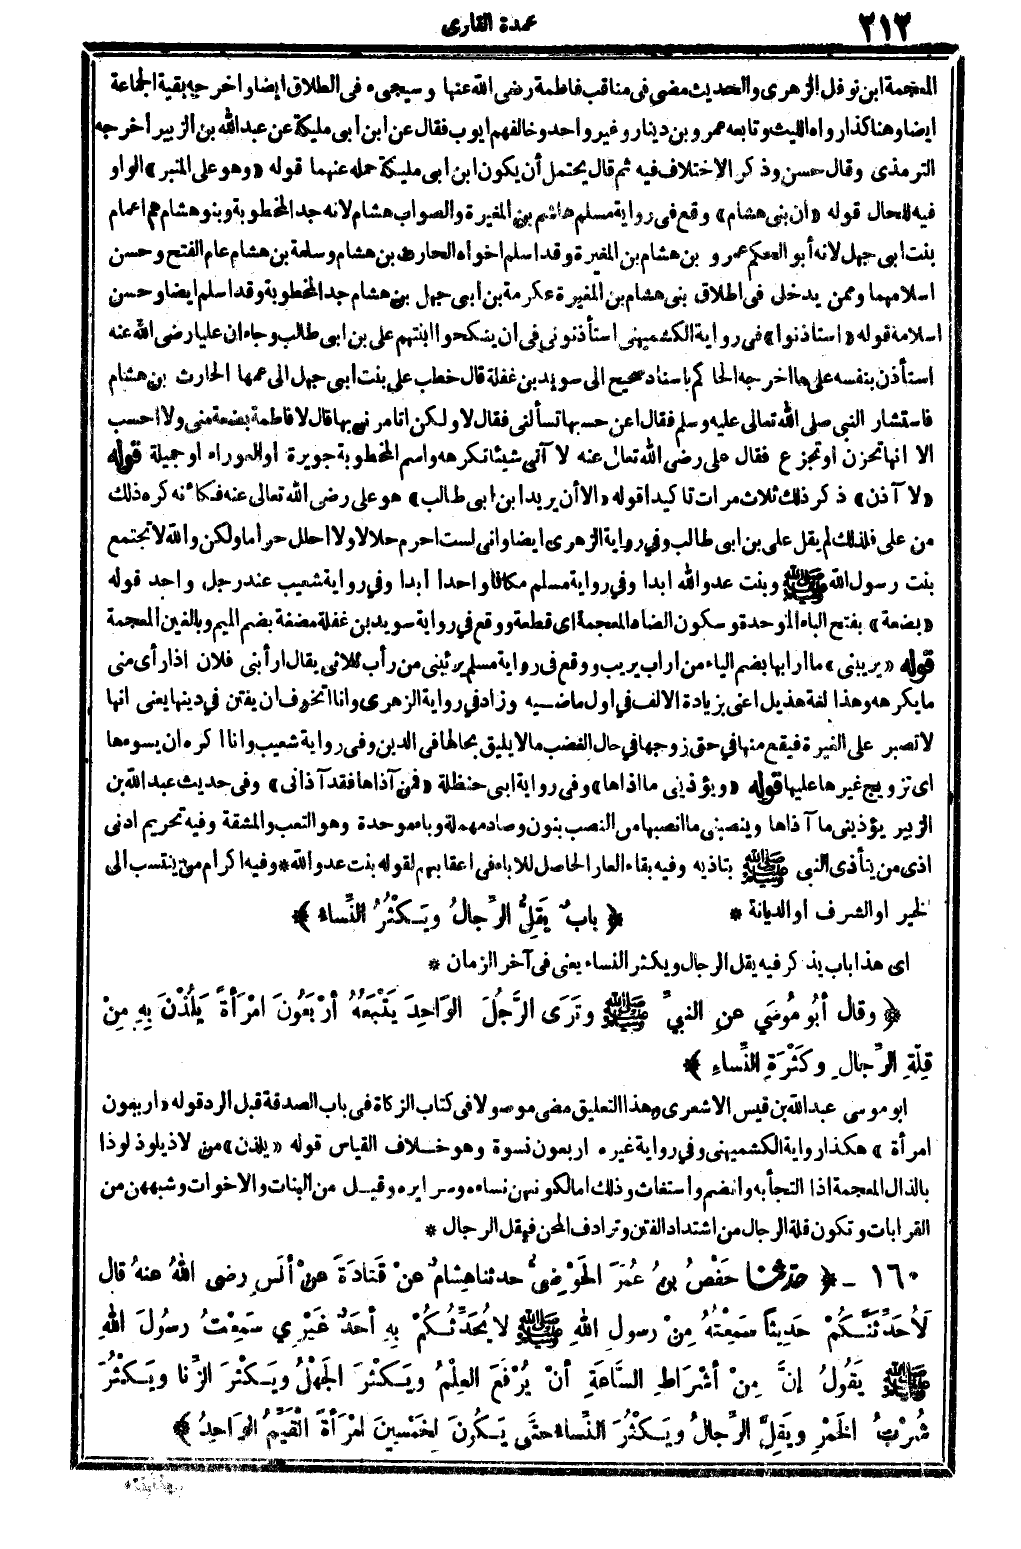 ٢١٢
عمدة القارى
المعجمة ابن نوفل الزهرى والحديث مضى فى مناقب فاطمة رضى الله عنها وسيجىء فى الطلاق ايضا واخرجه بقية الجماعة
ايضا وهنا كذا رواه الليث وتابعه عمرو بن دينار وغير واحد وخالفهم ايوب فقال عن ابن أبى مليكة عن عبدالله بن الزبير أخرجه
الترمذى وقال حسن وذكر الاختلاف فيه ثم قال يحتمل أن يكون ابن ابى مليكة حمله عنهما قوله «وهو على المنبر» الواو
فيه للحال قوله «ان بنى هشام» وقع فى رواية مسلم هاشم بن المغيرة والصواب هشام لانه جد المخطوبة وبنو هشام هم اعمام
بنت ابى جهل لانه أبو الحكم عمرو بن هشام بن المغيرة وقد اسلم اخواه الحارث بن هشام وسلمة بن هشام عام الفتح وحسن
اسلامهما وممن يدخل فى اطلاق بنى هشام بن المغيرة عكرمة بن ابى جهل بن هشام جد المخطوبة وقد اسلم ايضا وحسن
اسلامه قوله «استاذنوا» فى رواية الكشميهنى استأذنونى فى ان ينكحوا ابنتهم على بن ابى طالب وجاء ان عليا رضى الله عنه
استأذن بنفسه على ما اخرجه الحاكم باسناد صحيح الى سويد بن غفلة قال خطب على بنت ابى جهل الى عمها الحارث بن هشام
فاستشار النبى صلى الله تعالى عليه وسلم فقال اعن حسبها تسألنى فقال لا ولكن اتامرنى بها قال لا فاطمة بضعة منى ولا احسب
الا انها تحزن او تجزع فقال على رضى الله تعالى عنه لا آتى شيئا تكرهه واسم المخطوبة جويرة او العوراء او جميلة قوله
«لا آذن» ذكر ذلك ثلاث مرات تاكيدا قوله «الا أن يريد ابن ابى طالب» هو على رضى الله تعالى عنه فكانه كره ذلك
من على فلذلك لم يقل على بن ابى طالب وفى رواية الزهرى ايضا وانى لست احرم حلالا ولا احلل حراما ولكن والله لا تجتمع
بنت رسول الله ﷺ وبنت عدو الله ابدا وفى رواية مسلم مكانا واحدا ابدا وفى رواية شعيب عند رجل واحد قوله
«بضعة» بفتح الباء الموحدة وسكون الضاد المعجمة اى قطعة ووقع فى رواية سويد بن غفلة مضغة بضم الميم وبالغين المعجمة
قوله «يريبنى» ما أرابها بضم الياء من اراب يريب ووقع فى رواية مسلم يرئبنى من رأب ثلاثى يقال ارأبنى فلان اذا رأى منى
ما يكرهه وهذا لغة هذيل اعنى بزيادة الالف فى اول ماضيه وزاد فى رواية الزهرى وانا اتخوف ان يفتن فى دينها يعنى انها
لا تصبر على الغيرة فيقع منها فى حق زوجها فى حال الغضب ما لا يليق بحالها فى الدين وفى رواية شعيب وانا اكره ان يسوءها
اى تزويج غيرها عليها قوله «ويؤذينى ما اذاها» وفى رواية ابى حنظلة «فمن آذاها فقد آذانى» وفى حديث عبدالله بن
الزبير يؤذينى ما آذاها وينصبنى ما انصبها من النصب بنون وصاد مهملة وباء موحدة وهو التعب والمشقة وفيه تحريم ادنى
اذى من يتأذى النبى ﷺ بتاذيه وفيه بقاء العار الحاصل للاباء فى اعقابهم لقوله بنت عدو الله * وفيه اكرام من ينتسب الى
الخير او الشرف او الديانة *
﴿ بابٌ يَقِلُّ الرِّجالُ ويَكْثُرُ النِّساءُ ﴾
اى هذا باب يذكر فيه يقل الرجال ويكثر النساء يعنى فى آخر الزمان *
﴿ وقال أبُو مُوسَى عنِ النبىِّ ﷺ وتَرَى الرَّجُلَ الوَاحِدَ يَتْبَعُهُ أرْبَعُونَ امْرَأةً يَلُذْنَ بِهِ مِنْ
قِلَّةِ الرِّجالِ وكَثْرَةِ النِّساءِ ﴾
ابو موسى عبدالله بن قيس الاشعرى وهذا التعليق مضى موصولا فى كتاب الزكاة فى باب الصدقة قبل الرد قوله «اربعون
امرأة» هكذا رواية الكشميهنى وفى رواية غيره اربعون نسوة وهو خلاف القياس قوله «يلذن» من لاذ يلوذ لوذا
بالذال المعجمة اذا التجأ به وانضم واستغاث وذلك اما لكونهن نساءه وسراريه وقيل من البنات والاخوات وشبههن من
القرابات وتكون قلة الرجال من اشتداد الفتن وترادف المحن فيقل الرجال *
١٦٠ - ﴿ حدثنا حَفْصُ بنُ عُمَرَ الحَوْضِىُّ حدثنا هِشامٌ عنْ قَتَادَةَ عنْ أنَسٍ رضى اللهُ عنهُ قال
لَأُحَدِّثَنَّكُمْ حَدِيثاً سَمِعْتُهُ مِنْ رسولِ اللهِ ﷺ لا يُحَدِّثُكُمْ بِهِ أحَدٌ غَيْرِي سَمِعْتُ رسُولَ اللهِ
ﷺ يَقُولُ إنَّ مِنْ أشْرَاطِ السَّاعَةِ أنْ يُرْفَعَ العِلْمُ ويَكْثُرَ الجَهْلُ ويَكْثُرَ الزِّنا ويَكْثُرَ
شُرْبُ الخَمْرِ ويَقِلَّ الرِّجالُ ويَكْثُرَ النِّساءُ حتَّى يَكُونَ لِخَمْسِينَ امْرَأةً القَيِّمُ الوَاحِدُ ﴾